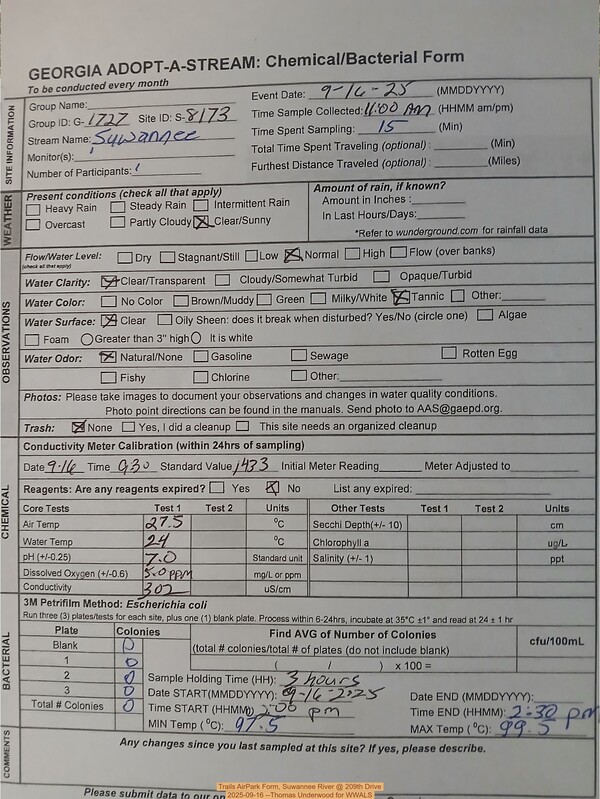 GEORGIA ADOPT-A-STREAM: Chemical/Bacterial Form
To be conducted every month
SITE INFORMATION
Group Name:
Group ID: G-1727 Site ID: S-8173
Stream Name: Suwannee
Monitor(s):
Number of Participants: 1
Event Date: 9-16-25 (MMDDYYYY)
Time Sample Collected: 11:00 Am (HHMM am/pm)
Time Spent Sampling: 15 (Min)
Total Time Spent Traveling (optional): (Min)
Furthest Distance Traveled (optional): (Miles)
WEATHER
Present conditions (check all that apply)
Heavy Rain Steady Rain Intermittent Rain
Overcast Partly Cloudy Clear/Sunny
Amount of rain, if known?
Amount in Inches:
In Last Hours/Days:
*Refer to wunderground.com for rainfall data
OBSERVATIONS
Flow/Water Level: Dry Stagnant/Still Low Normal High Flow (over banks)
(check all that apply)
Water Clarity: Clear/Transparent Cloudy/Somewhat Turbid Opaque/Turbid
Water Color: No Color Brown/Muddy Green Milky/White Tannic Other:
Water Surface: Clear Oily Sheen: does it break when disturbed? Yes/No (circle one) Algae
Foam Greater than 3" high It is white
Water Odor: Natural/None Gasoline Sewage Rotten Egg
Fishy Chlorine Other:
Photos: Please take images to document your observations and changes in water quality conditions.
Photo point directions can be found in the manuals. Send photo to AAS@gaepd.org.
Trash: None Yes, I did a cleanup This site needs an organized cleanup
CHEMICAL
Conductivity Meter Calibration (within 24hrs of sampling)
Date 9-16 Time 930 Standard Value 1433 Initial Meter Reading Meter Adjusted to
Reagents: Are any reagents expired? Yes No List any expired:
Core Tests Test 1 Test 2 Units Other Tests Test 1 Test 2 Units
Air Temp 27.5 °C Secchi Depth(+/- 10) cm
Water Temp 24 °C Chlorophyll a ug/L
pH (+/-0.25) 7.0 Standard unit Salinity (+/- 1) ppt
Dissolved Oxygen (+/-0.6) 5.0 ppm mg/L or ppm
Conductivity 302 uS/cm
BACTERIAL
3M Petrifilm Method: Escherichia coli
Run three (3) plates/tests for each site, plus one (1) blank plate. Process within 6-24hrs, incubate at 35°C ±1° and read at 24 ± 1 hr
Plate Colonies
Blank 0
1 0
2 0
3 0
Total # Colonies 0
Find AVG of Number of Colonies
(total # colonies/total # of plates (do not include blank)
( / ) x 100 =
cfu/100mL
Sample Holding Time (HH): 3 hours
Date START(MMDDYYYY): 09-16-2025 Date END (MMDDYYYY):
Time START (HHMM) 2:00 pm Time END (HHMM): 2:30 pm
MIN Temp (°C): 97.5 MAX Temp (°C): 99.5
COMMENTS
Any changes since you last sampled at this site? If yes, please describe.
Please submit data to our on
Trails AirPark Form, Suwannee River @ 209th Drive
2025-09-16 --Thomas Underwood for WWALS